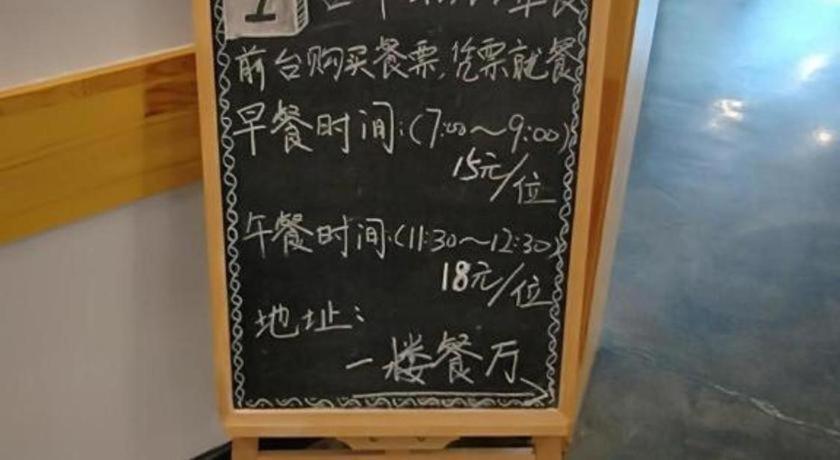 前台购买餐票,凭票就餐
早餐时间:(7:00~9:00)
15元/位
午餐时间:(11:30~12:30)
18元/位
地址:
一楼餐厅